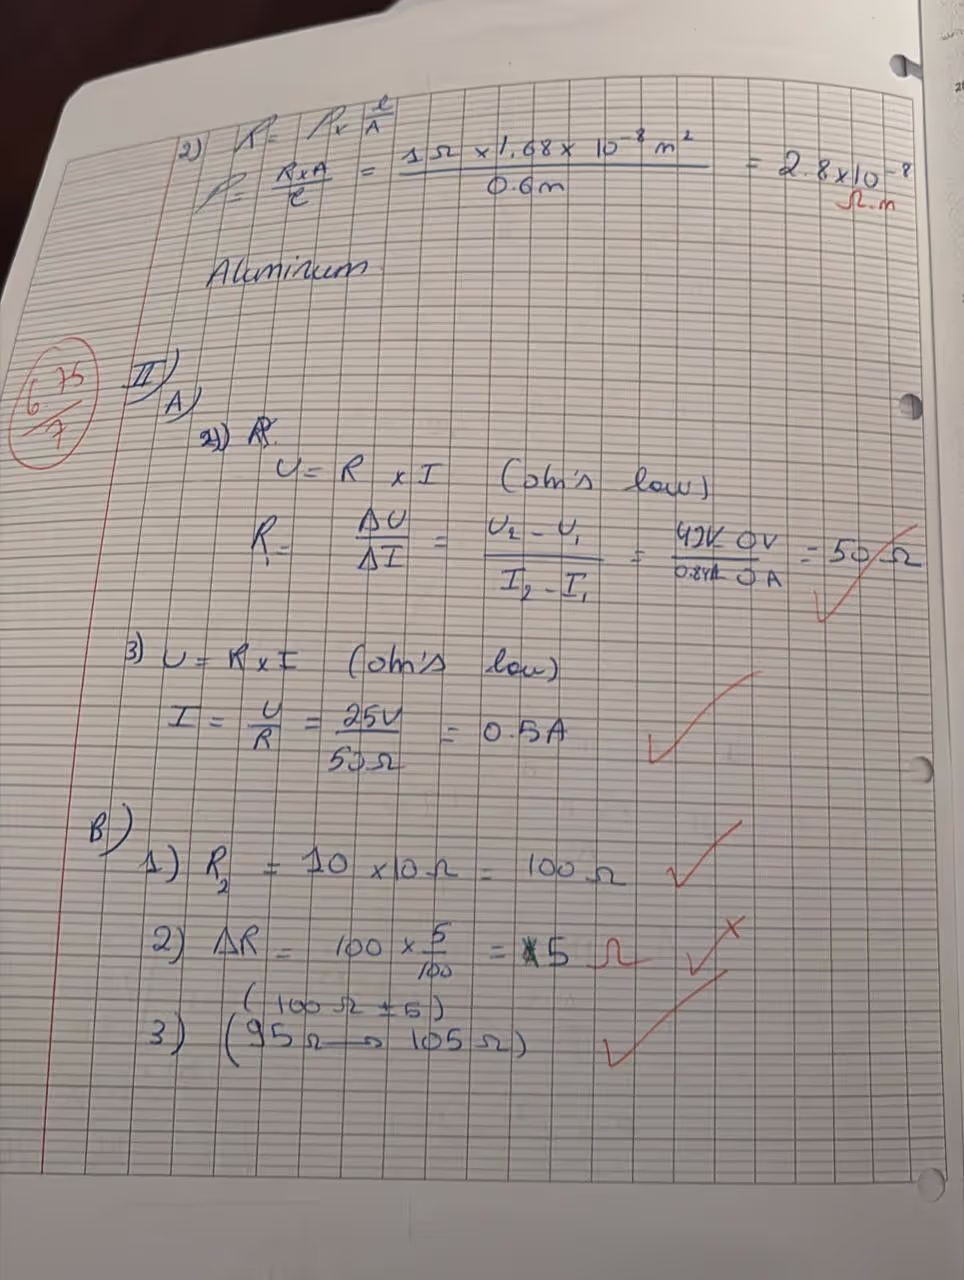 2) R = ρ x l/A
ρ = R x A / l = 1 Ω x 1.68 x 10⁻⁸ m² / 0.6m = 2.8x10⁻⁸
Ω.m
Aluminum
6.75/7
II)
A)
2)) R
U = R x I (ohm's law)
R₁ = ΔU/ΔI = U₂ - U₁ / I₂ - I₁ = 42V 0V / 0.84A 0A = 50 Ω
3) U = R x I (ohm's law)
I = U/R = 25V / 50Ω = 0.5A
B)
1) R₂ = 10 x 10 Ω = 100 Ω
2) ΔR = 100 x 5/100 = 5 Ω
(100Ω ± 5)
3) (95Ω → 105Ω)